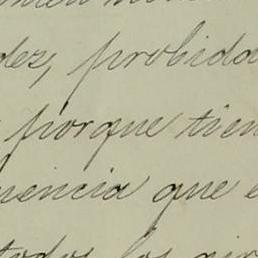 dez, probida
porque tien
uencia que e
todos los